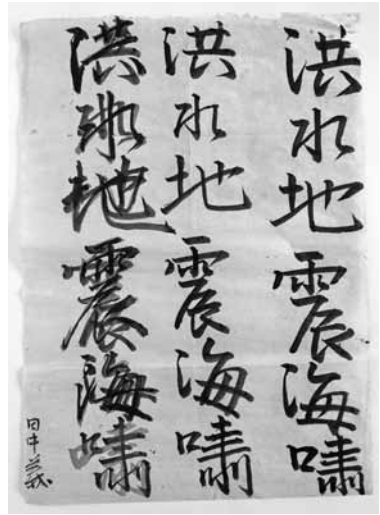 洪水地震海嘯
洪水地震海嘯
洪水地震海嘯
田中